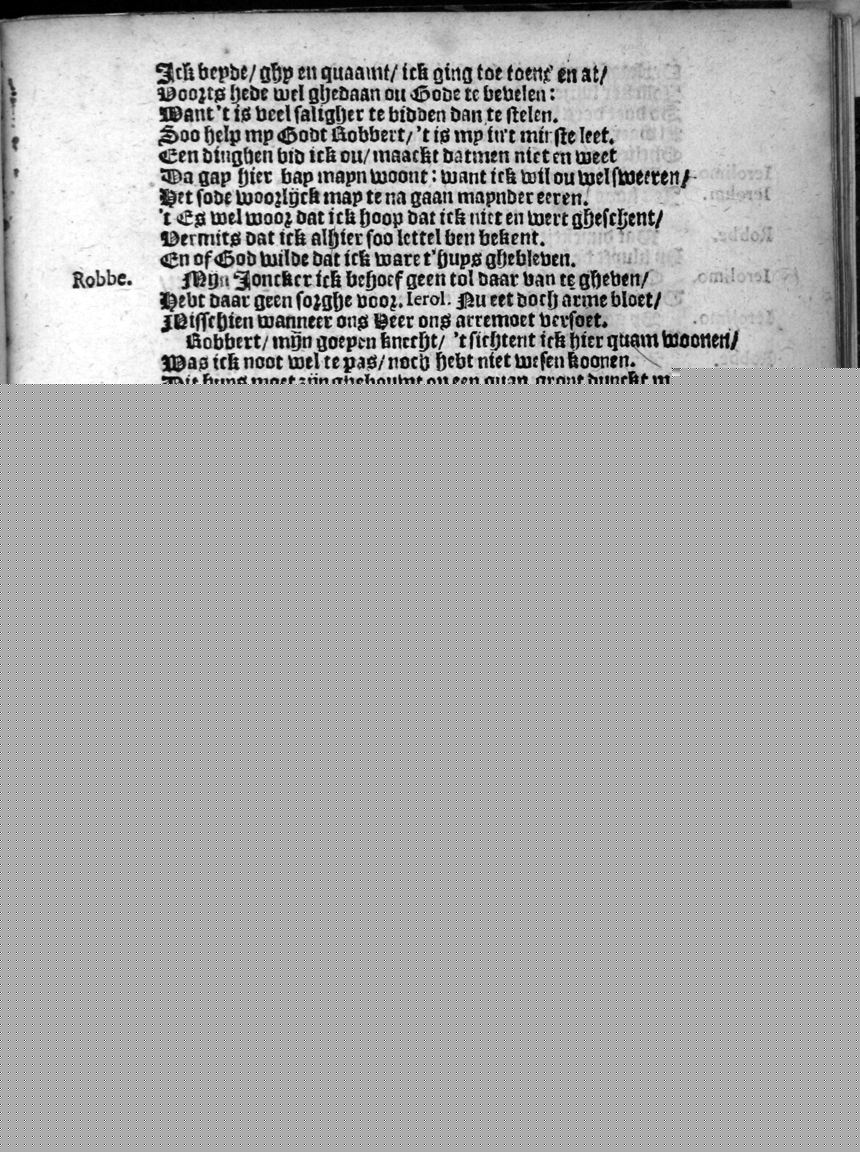 Ick beyde/ ghy en quaamt/ ick ging toe toens en at/
Voorts hede wel ghedaan ou Gode te bevelen:
Want 't is veel saligher te bidden dan te stelen.
Soo help my Godt Robbert/ 't is my in't minste leet.
Een dinghen bid ick ou/ maackt datmen niet en weet
Da gay hier bay mayn woont: want ick wil ou wel sweeren/
Het sode woorlijck may te na gaan maynder eeren.
't Es wel woor dat ick hoop dat ick niet en wert gheschent/
Vermits dat ick alhier soo lettel ben bekent.
En of God wilde dat ick ware t'huys ghebleven.
Robbe. Mijn Joncker ick behoef geen tol daar van te gheven/
Hebt daar geen sorghe voor. Ierol. Nu eet doch arme bloet/
Misschien wanneer ons Heer ons arremoet versoet.
Robbert/ mijn goeyen knecht/ 't sichtent ick hier quam woonen/
Was ick noot wel te pas/ noch hebt niet wesen koonen.
Die huys moet zijn ghebouwt op een quan gront dunckt